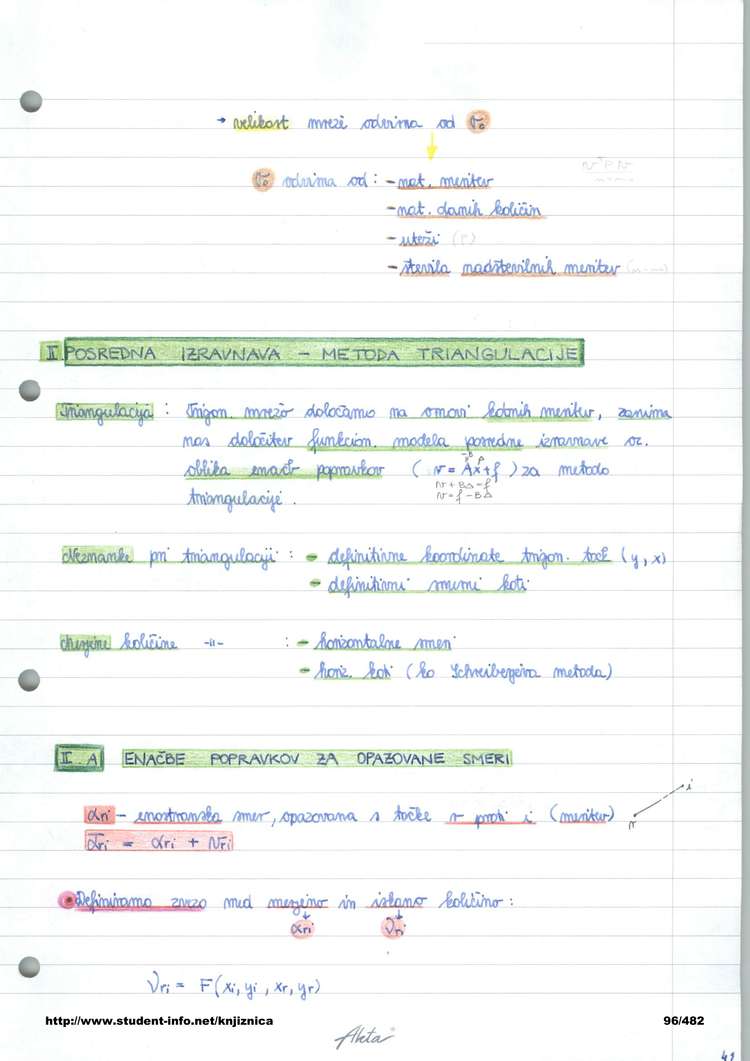 → velikost mreže odvisna od σ₀
vᵀPv
σ₀ odvisna od : - nat. meritev
- nat. danih količin
- uteži (P)
- števila nadštevilnih meritev
II POSREDNA IZRAVNAVA - METODA TRIANGULACIJE
Triangulacija : Trigon. mrežo določamo na osnovi kotnih meritev, zanima
nas določitev funkcion. modela posredne izravnave oz.
oblika enačb popravkov ( v = Ax + f ) za metodo
v + BΔ = f
triangulacije.
v = f - BΔ
Neznanke pri triangulaciji : - definitivne koordinate trigon. točk (y, x)
- definitivni smerni koti
Merjene količine -||- : - horizontalne smeri
- horiz. koti (ko Schreiberjeva metoda)
II A ENAČBE POPRAVKOV ZA OPAZOVANE SMERI
αri - enostranska smer, opazovana s točke r proti i (meritev)
r i
ᾱri = αri + vri
Definiramo zvezo med merjeno in iskano količino :
αri νri
νri = F(xi, yi, xr, yr)
http://www.student-info.net/knjiznica 96/482
Akta